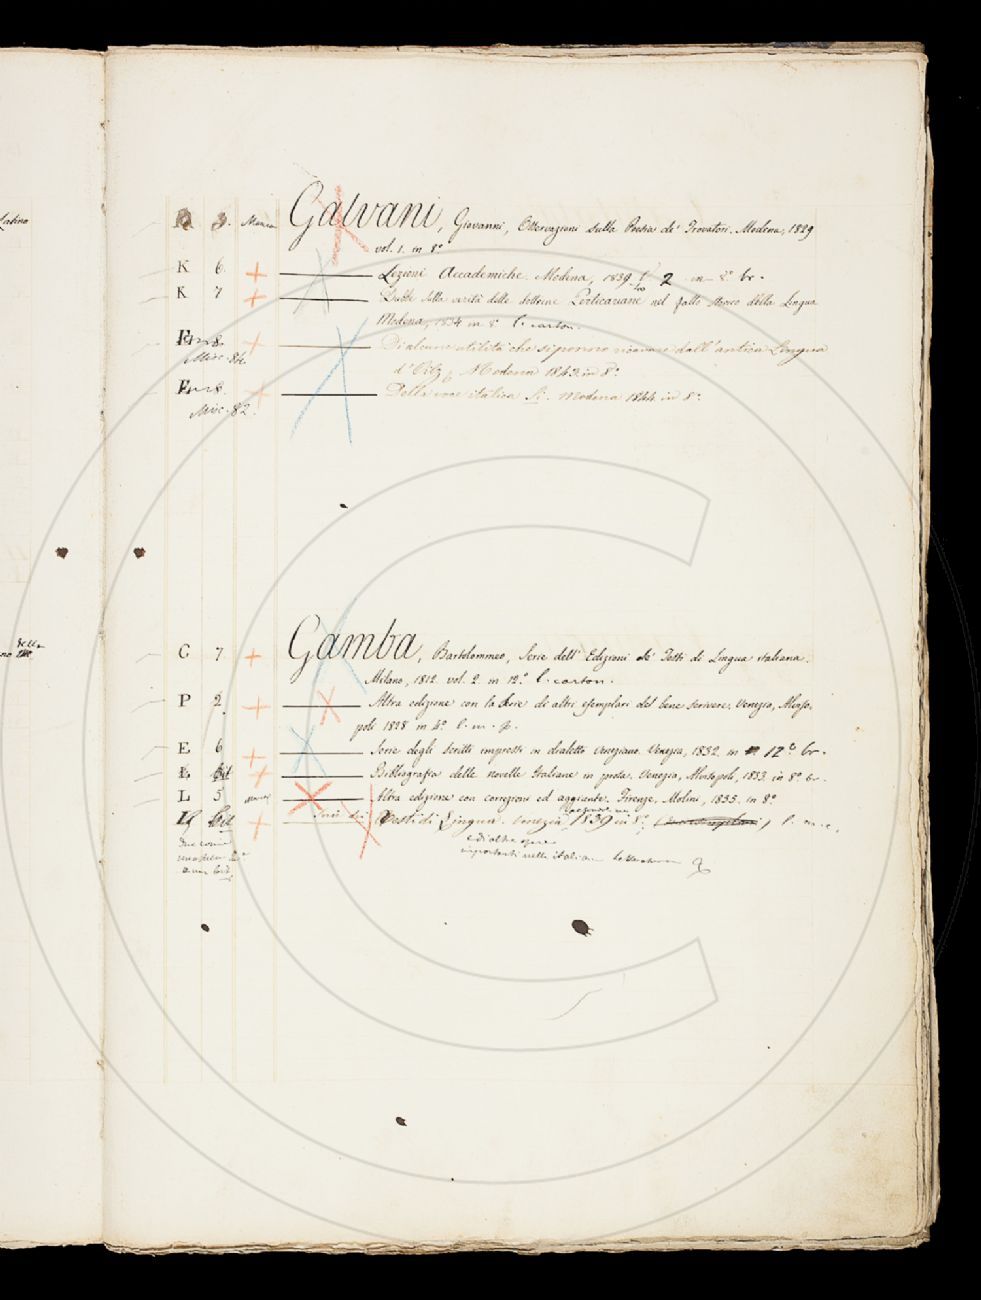 Latino
R 3. Manca Galvani, Giovanni, Osservazioni sulla Poesia de' Trovatori. Modena, 1829
vol. 1. in 8°
K 6 Lezioni Accademiche. Modena, 1839 2 in br.
K 7 Dubbi sulla verità delle dottrine Perticariane nel fatto storico della Lingua
Modena, 1834 in 8° l. carton.
8. Di alcune utilità che si ponno ricavare dall'antica Lingua
Misc. 84. d'Oil, Modena 1843 in 8°.
8. Della voce italica Sì. Modena 1844 in 8°.
Misc. 82.
G 7 Gamba, Bartolommeo, Serie dell'Edizioni de' Testi di Lingua italiana.
Milano, 1812. vol. 2. in 12° l. carton.
P 2. Altra edizione con la Serie di altri esemplari del bene scrivere. Venezia, Alviso-
poli 1828 in 4° l. m. p.
E 6 Serie degli scritti impressi in dialetto Veneziano. Venezia, 1832. in 12° br.
L bil Bibliografia delle novelle Italiane in prosa. Venezia, Alvisopoli, 1833. in 8° br.
L 5 Altra edizione con correzioni ed aggiunte. Firenze, Molini, 1835. in 8°
Serie dei Testi di Lingua. Venezia, 1839 in 8°
ed altre opere
importanti nella italiana letteratura